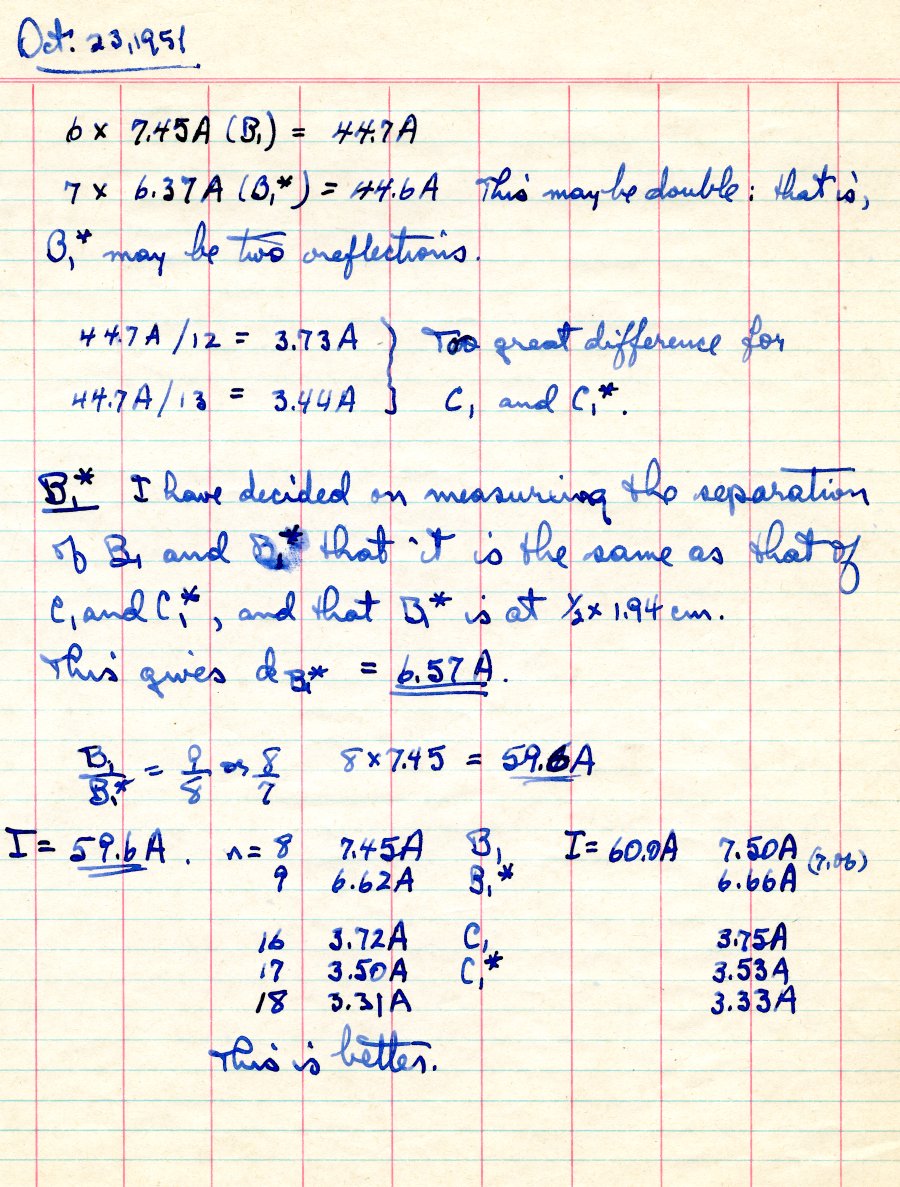 Oct. 23, 1951
6 × 7.45A (B₁) = 44.7A
7 × 6.37A (B₁*) = 44.6A This may be double: that is,
B₁* may be two reflections.
44.7A/12 = 3.73A } Too great difference for
44.7A/13 = 3.44A } C₁ and C₁*.
B₁* I have decided on measuring the separation
of B₁ and B₁* that it is the same as that of
C₁ and C₁*, and that B₁* is at ½ × 1.94 cm.
This gives d_B₁* = 6.57A.
B₁/B₁* = 9/8 or 8/7 8 × 7.45 = 59.6A
I = 59.6A. n = 8 7.45A B₁ I = 60.0A 7.50A
9 6.62A B₁* 6.66A (7.06)
16 3.72A C₁ 3.75A
17 3.50A C₁* 3.53A
18 3.31A 3.33A
This is better.